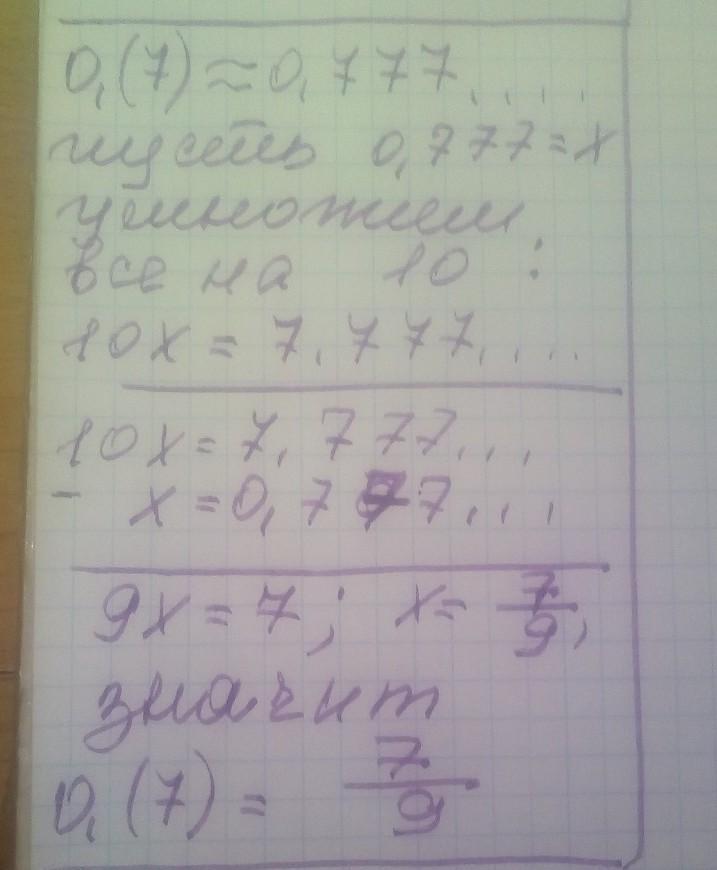 0,(7) ≈ 0,777....
пусть 0,777 = x
умножим
все на 10 :
10x = 7,777....
10x = 7,777...
- x = 0,777...
9x = 7; x = 7/9,
значит
0,(7) = 7/9